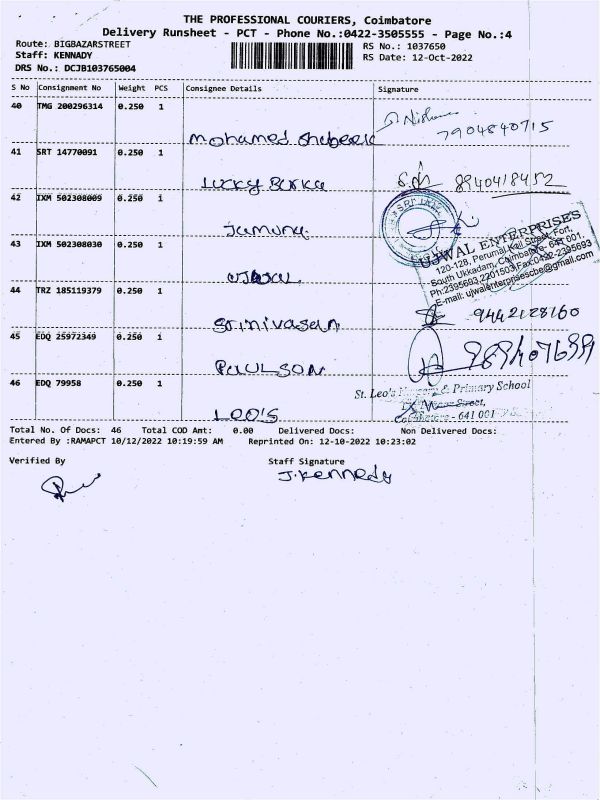 THE PROFESSIONAL COURIERS, Coimbatore
Delivery Runsheet - PCT - Phone No.:0422-3505555 - Page No.:4
Route: BIGBAZARSTREET
RS No.: 1037650
Staff: KENNADY
RS Date: 12-Oct-2022
DRS No.: DCJB103765004
S No Consignment No Weight PCS Consignee Details Signature
40 TMG 200296314 0.250 1
7904840715
Mohamed Shabeeric
41 SRT 14770091 0.250 1
Lucky Burka 8940418452
42 IXM 502308009 0.250 1
Jamuna
43 IXM 502308030 0.250 1
UJWAL ENTERPRISES
120-128, Perumal Koil Street, Fort,
South Ukkadam, Coimbatore- 641 001.
Ph:2395693,2201503,Fax:0422-2395693
E-mail: ujwalenterprisescbe@gmail.com
44 TRZ 185119379 0.250 1
Srinivasan 9442128160
45 EDQ 25972349 0.250 1
PAULSON
46 EDQ 79958 0.250 1
St. Leo's Nursery & Primary School
Street,
Coimbatore - 641 001
LEO'S
Total No. Of Docs: 46 Total COD Amt: 0.00 Delivered Docs: Non Delivered Docs:
Entered By :RAMAPCT 10/12/2022 10:19:59 AM Reprinted On: 12-10-2022 10:23:02
Verified By Staff Signature
J.Kennedy